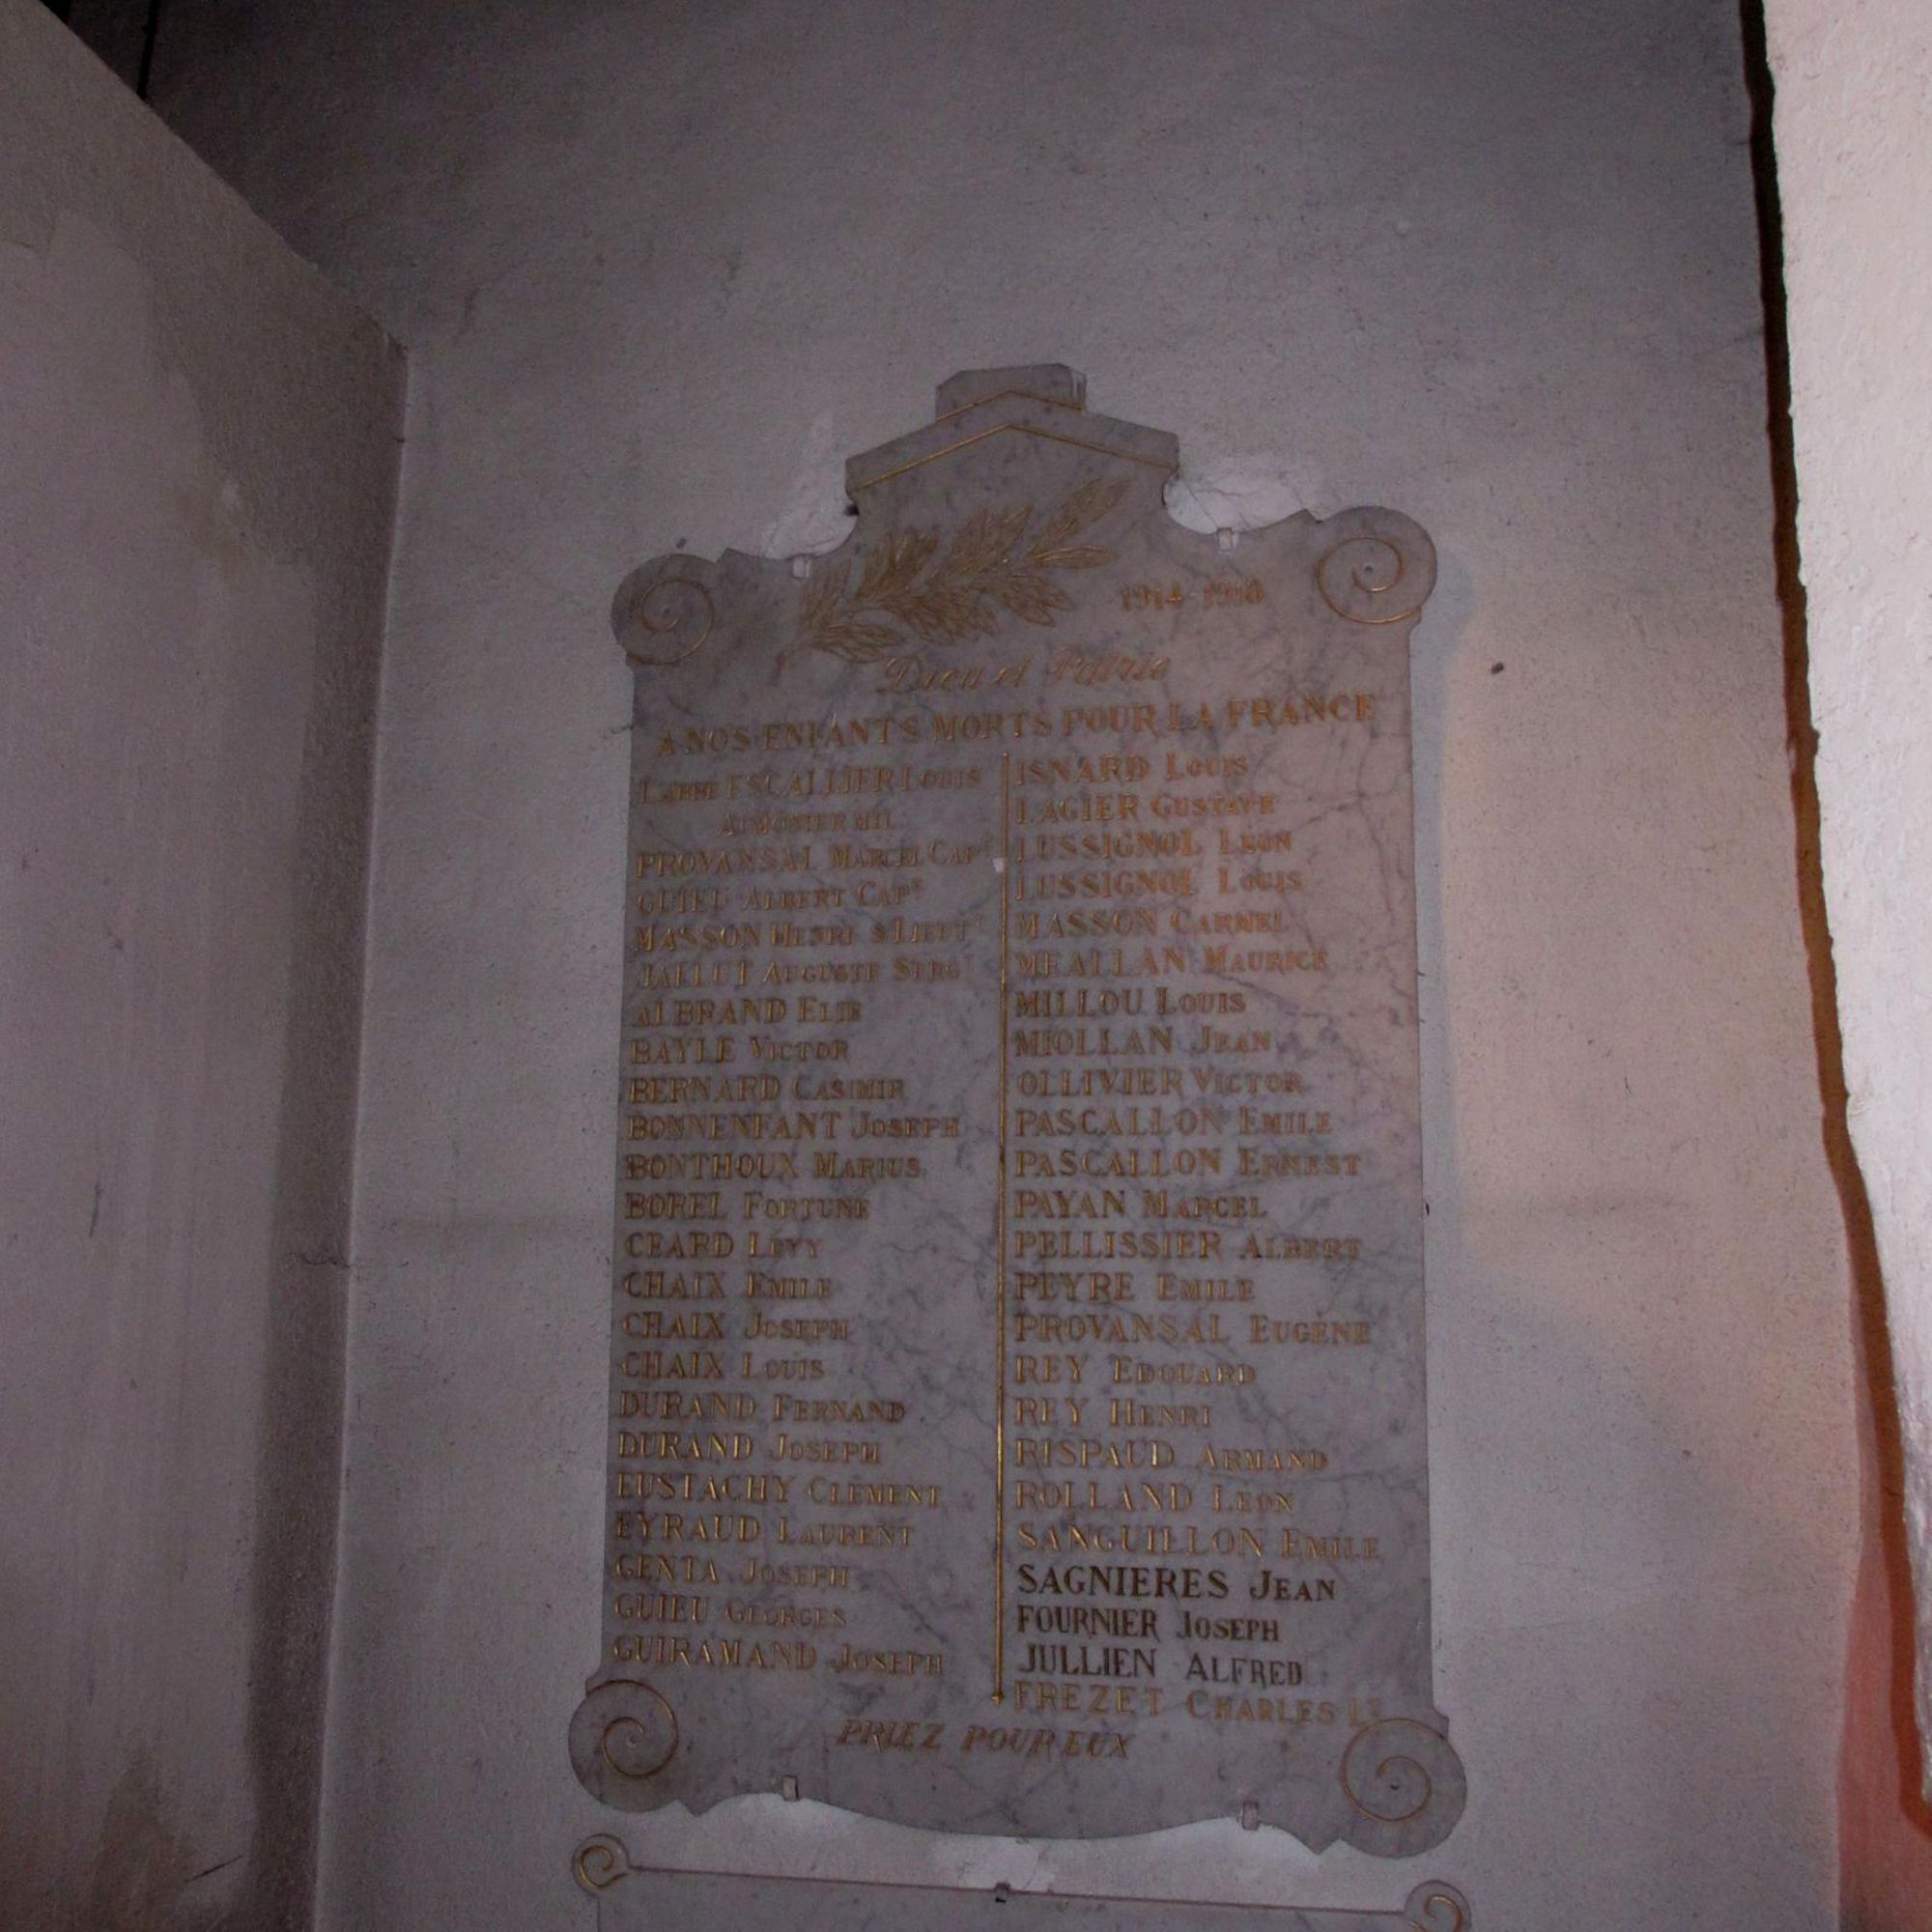 1914-1918
Dieu et Patrie
A NOS ENFANTS MORTS POUR LA FRANCE
L'ABBÉ ESCALLIER LOUIS
AUMONIER MIL.
PROVANSAL MARCEL CAPT
GUIEU ALBERT CAPT
MASSON HENRI S/LIEUTT
AUGUSTE SERGT
ALBRAND ELIE
BAYLE VICTOR
BERNARD CASIMIR
BONNENFANT JOSEPH
BONTHOUX MARIUS
BOREL FORTUNÉ
CEARD LÉVY
CHAIX EMILE
CHAIX JOSEPH
CHAIX LOUIS
DURAND FERNAND
DURAND JOSEPH
EUSTACHY CLÉMENT
EYRAUD LAURENT
GENTA JOSEPH
GUIEU GEORGES
GUIRAMAND JOSEPH
ISNARD LOUIS
LAGIER GUSTAVE
LUSSIGNOL LÉON
LUSSIGNOL LOUIS
MASSON CARMEL
MEALLAN MAURICE
MILLOU LOUIS
MIOLLAN JEAN
OLLIVIER VICTOR
PASCALLON EMILE
PASCALLON ERNEST
PAYAN MARCEL
PELLISSIER ALBERT
PEYRE EMILE
PROVANSAL EUGÈNE
REY EDOUARD
REY HENRI
RISPAUD ARMAND
ROLLAND LÉON
SANGUILLON EMILE
SAGNIERES JEAN
FOURNIER JOSEPH
JULLIEN ALFRED
FREZET CHARLES LT
PRIEZ POUR EUX